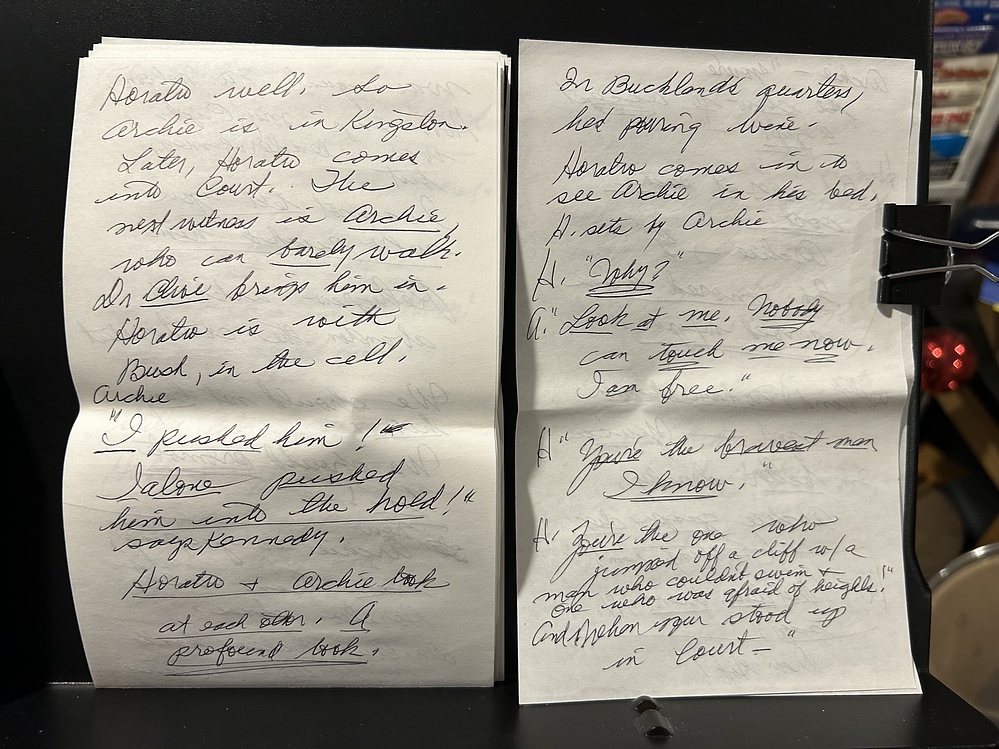 Horatio well. So
Archie is in Kingston.
Later, Horatio comes
into Court. The
next witness is Archie,
who can barely walk.
Dr Clive brings him in.
Horatio is with
Bush, in the cell.
Archie
"I pushed him!"
I alone pushed
him into the hold!"
says Kennedy.
Horatio + Archie look
at each other. A
profound look.
In Buckland's quarters,
hes pouring wine.
Horatio comes in to
see Archie in his bed.
H. sets by Archie
H. "Why?"
A. "Look at me. Nobody
can touch me now.
I am free."
H "You're the bravest man
I know."
H. You're the one who
jumped off a cliff w/a
man who couldn't swim +
one who was afraid of heights!"
And when you stood up
in Court—"